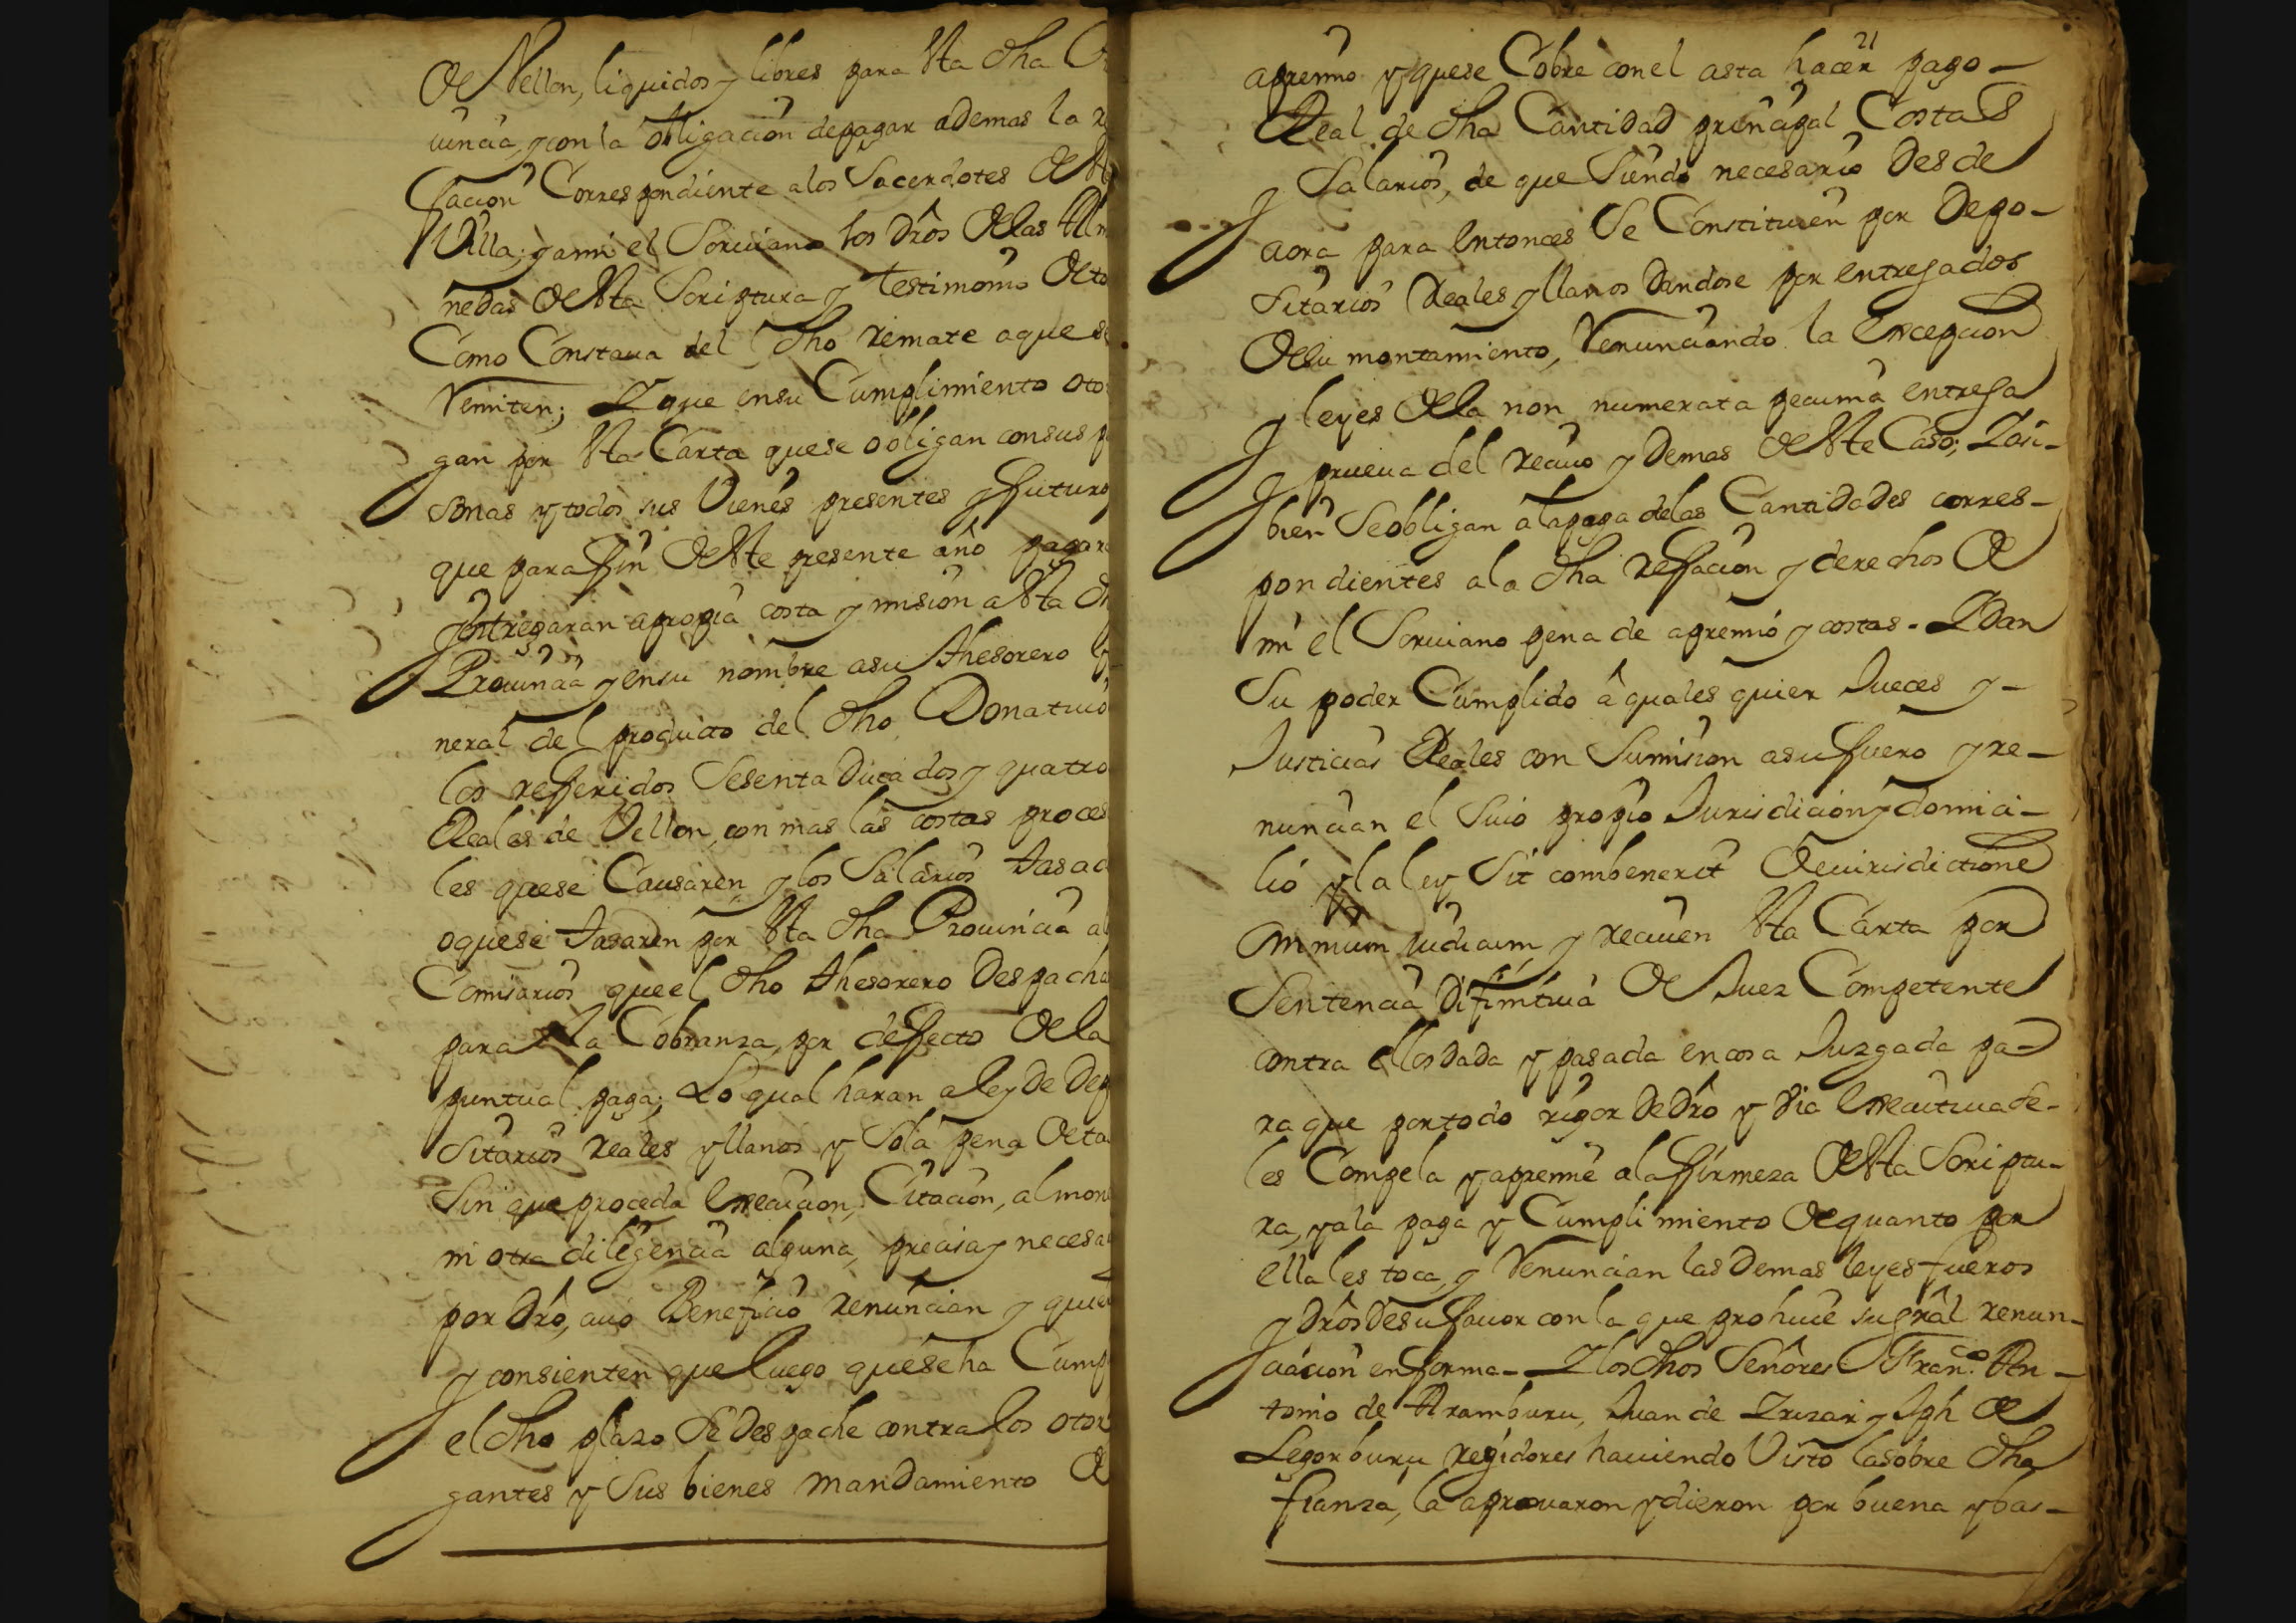 de Vellon, liquidos y libres para Esta dha
uincia, y con la obligacion depagar ademas la
facion Correspondiente alos Sacerdotes de
Villa; y ami el Scriuiano los drôs delas Alm
nedas de Esta Scriptura y testimonio de
Como Constaua del dho remate aque se
remiten; Y que ensu Cumplimiento oto
gan por Esta Carta quese obligan consus
sonas y todos sus Vienes presentes y futuro
que para fin de Este presente año pagar
y entregaran apropia costa y mision a Esta
Prouincia y ensu nombre asu thesorero
neral del producto del dho Donatiuo
los refferidos Sesenta Ducados y quatro
Reales de Vellon, con mas las costas proces
les quese Causaren y los Salarios tasad
oquese tasaren por Esta dha Prouincia a
Comisarios queel dho thesorero Despacha
para la Cobranza, por deffecto dela
puntual paga; Lo qual haran a ley de Dep
sitarios reales y llanos y Sola pena de ta
Sin que proceda Execucion, Citacion, almon
ni otra diligencia alguna, precisa y necesa
por drô, cuio Beneficio renuncian y quie
y consienten que luego quese ha Cump
el dho plazo Se Despache contra los otor
gantes y Sus bienes mandamiento de
21
apremio y quese Cobre conel asta hacer pago -
Real de dha Cantidad principal Costas
y Salarios, de que Siendo necesario Desde
aora para Entonces Se Constituien por Depo-
sitarios reales y llanos Dandose por entregados
desu montamiento, renunciando la Excepcion
y leyes dela non numerata pecunia entrega
y prueua del reciuo y Demas de Este Caso; Y asi-
bien Se obligan ala paga delas Cantidades corres-
pondientes ala dha reffacion y derechos de
mi el Scriuiano pena de apremio y costas - Y Dan
Su poder Cumplido â quales quier Jueces y -
Justicias Reales con Sumision asu fuero y re-
nuncian el Suio propio Jurisdicion y domici-
lio y la ley Sit combenerit de iurisdictione
omnium iudicum, y reciuen Esta Carta por
Sentencia Difinitiua de Juez Competente
contra ellos dada y pasada en cosa Juzgada pa-
ra que por todo rigor de drô y via Executiua se-
les Compela y apremie ala firmeza de Esta Scriptu-
ra, y ala paga y Cumplimiento de quanto por
ella les toca, y renuncian las Demas leyes fueros
y drôs desu fauor con la que prohiue su grâl renun-
ciacion en forma - Y los dhos Señores Franco An-
tonio de Aramburu, Juan de Yrizar y Jph de
Legorburu regidores hauiendo Visto la sobre dha
fianza, la aprouaron y dieron por buena y bas-